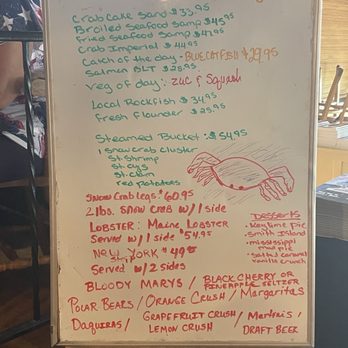 Crab Cake Sand $33.95
Broiled Seafood Samp $45.95
Fried Seafood Samp $41.95
Crab Imperial $44.95
Catch of the day - BLUE CATFISH $29.95
Salmon BLT $25.95
Veg of day: ZUC & Squash
Local Rockfish $34.95
Fresh Flounder $25.95
Steamed Bucket: $54.95
1 Snow Crab Cluster
St. Shrimp
St. Oys
St. Clam
red potatoes
SNOW CRAB Legs $60.95
2 lbs. SNOW CRAB W/ 1 side
LOBSTER: Maine LOBSTER
Served w/ 1 side $54.95
NEW YORK $49
Served w/ 2 sides
Desserts
Key lime Pie
Smith Island
Mississippi mud pie
Salted Caramel
Vanilla Crunch
BLOODY MARYS / BLACK CHERRY OR PINEAPPLE SELTZER
POLAR BEARS / ORANGE CRUSH / Margaritas
Daquiris / GRAPEFRUIT CRUSH / Martini's /
LEMON CRUSH / DRAFT BEER